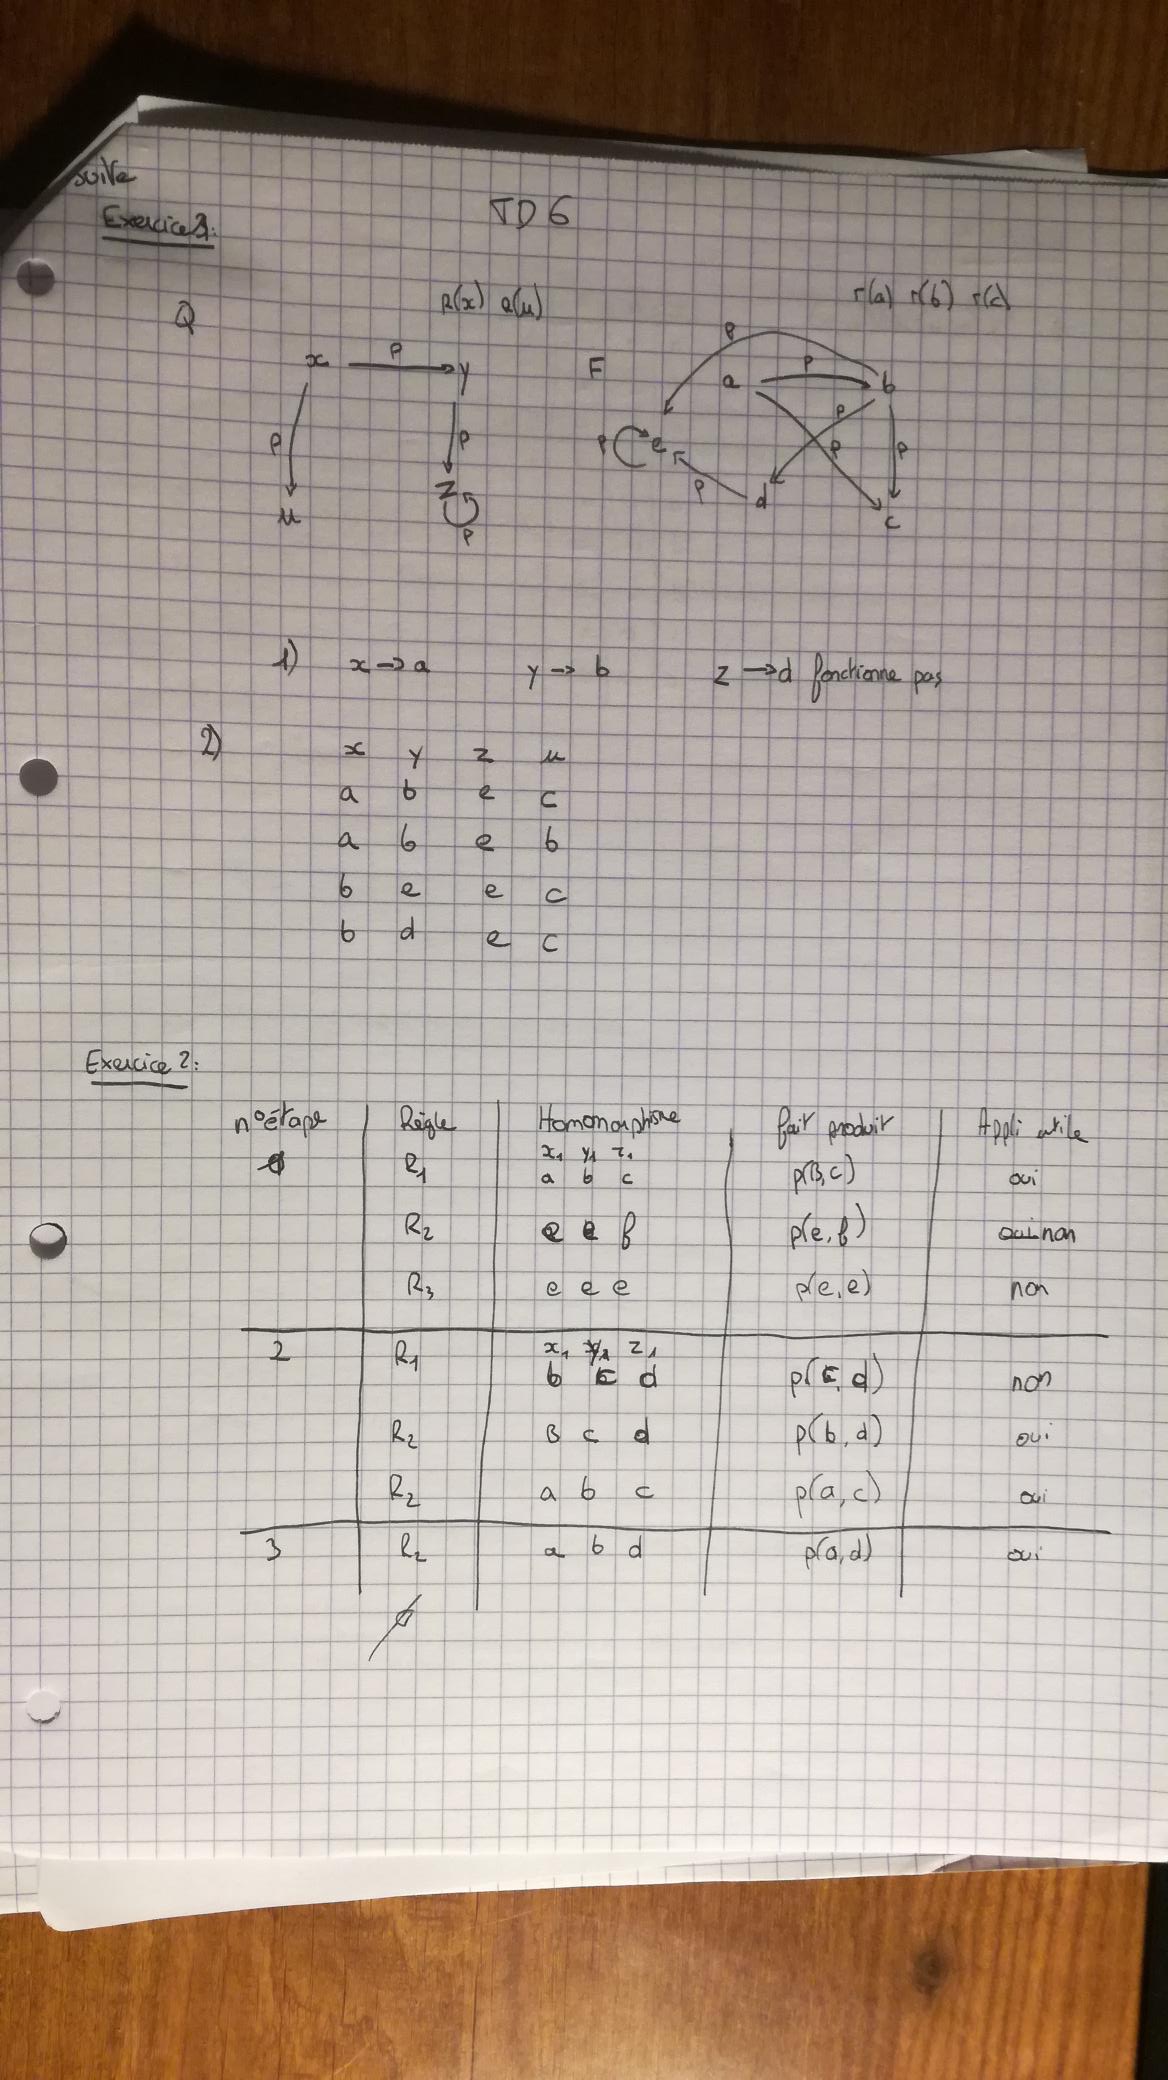 suite
TD6
Exercice 1:
Q R(x) R(u) r(a) r(b) r(c)
p
x p y F a p b
p p p e p p p
p d
u z p c
1) x → a y → b z → d fonctionne pas
2) x y z u
a b e c
a b e b
b e e c
b d e c
Exercice 2:
n° étape Règle Homomorphisme fait produit Appli utile
x1 y1 z1
R1 a b c p(B,c) oui
R2 e e f p(e,f) oui non
R3 e e e p(e,e) non
2 R1 x1 y1 z1
b c d p(c,d) non
R2 B c d p(b,d) oui
R2 a b c p(a,c) oui
3 R2 a b d p(a,d) oui